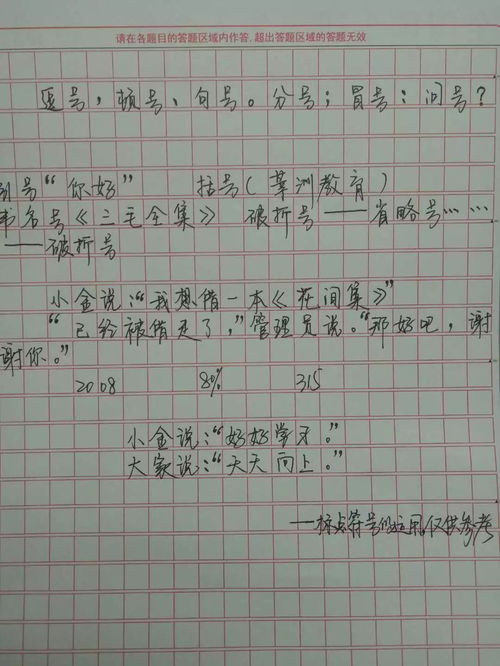 请在各题目的答题区域内作答,超出答题区域的答题无效
逗号，顿号、句号。分号；冒号：问号？
引号“你好” 括号(某洲教育)
书名号《三毛全集》 破折号——省略号……
——破折号
小金说：“我想借一本《花间集》”
“已经被借走了，”管理员说。“那好吧，谢
谢你。”
2008 80% 315
小金说：“好好学习。”
大家说：“天天向上。”
——标点符号的运用,仅供参考